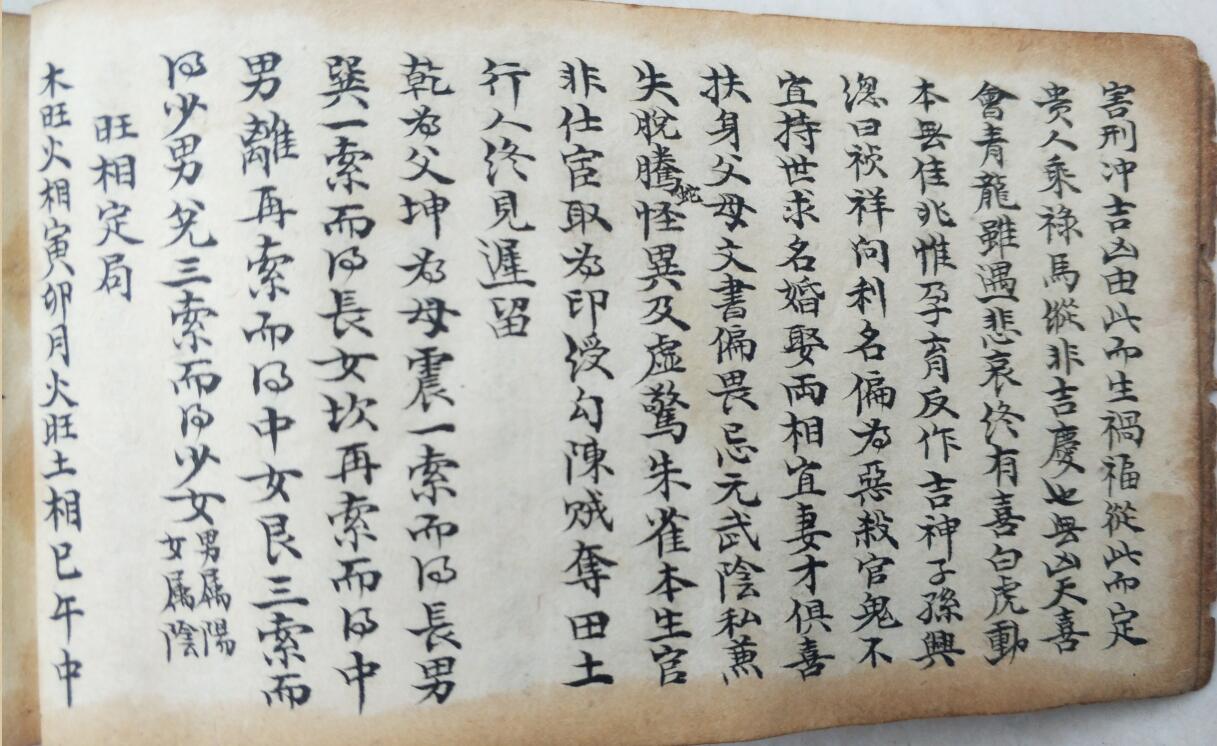 害刑冲吉凶由此而生禍福從此而定
贵人乘祿馬縱非吉慶也無凶天喜
會青龍雖遇悲哀終有喜白虎動
本無佳兆惟孕育反作吉神子孫興
總曰祯祥问利名偏为惡殺官鬼不
宜持世求名婚娶两相宜妻才俱喜
扶身父母文書偏畏忌元武陰私兼
失脫騰蛇怪異及虛驚朱雀本生官
非仕宦取为印绶勾陳贼奪田土
行人终見遲留
乾为父坤为母震一索而得長男
巽一索而得長女坎再索而得中
男離再索而得中女艮三索而
得少男兑三索而得少女男属陽
女属陰
旺相定局
木旺火相寅卯月火旺土相巳午中